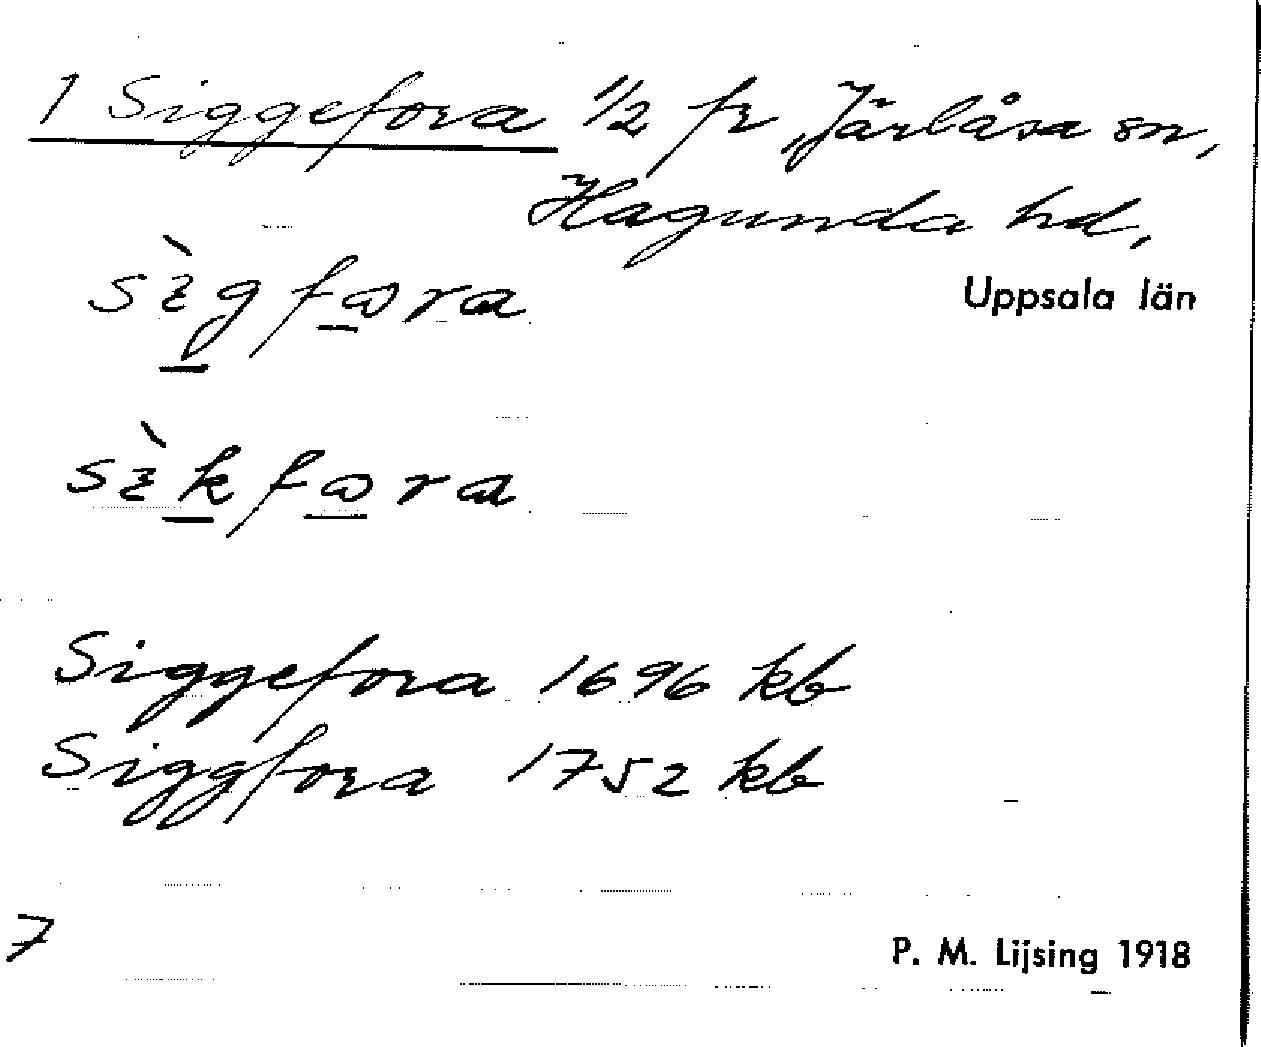 1 Siggefora 1/2 fr Järlåsa sn,
Hagunda hd,
Uppsala län
sìgfωra
sìkfωra
Siggefora 1696 kb
Siggfora 1752 kb
7
P. M. Lijsing 1918